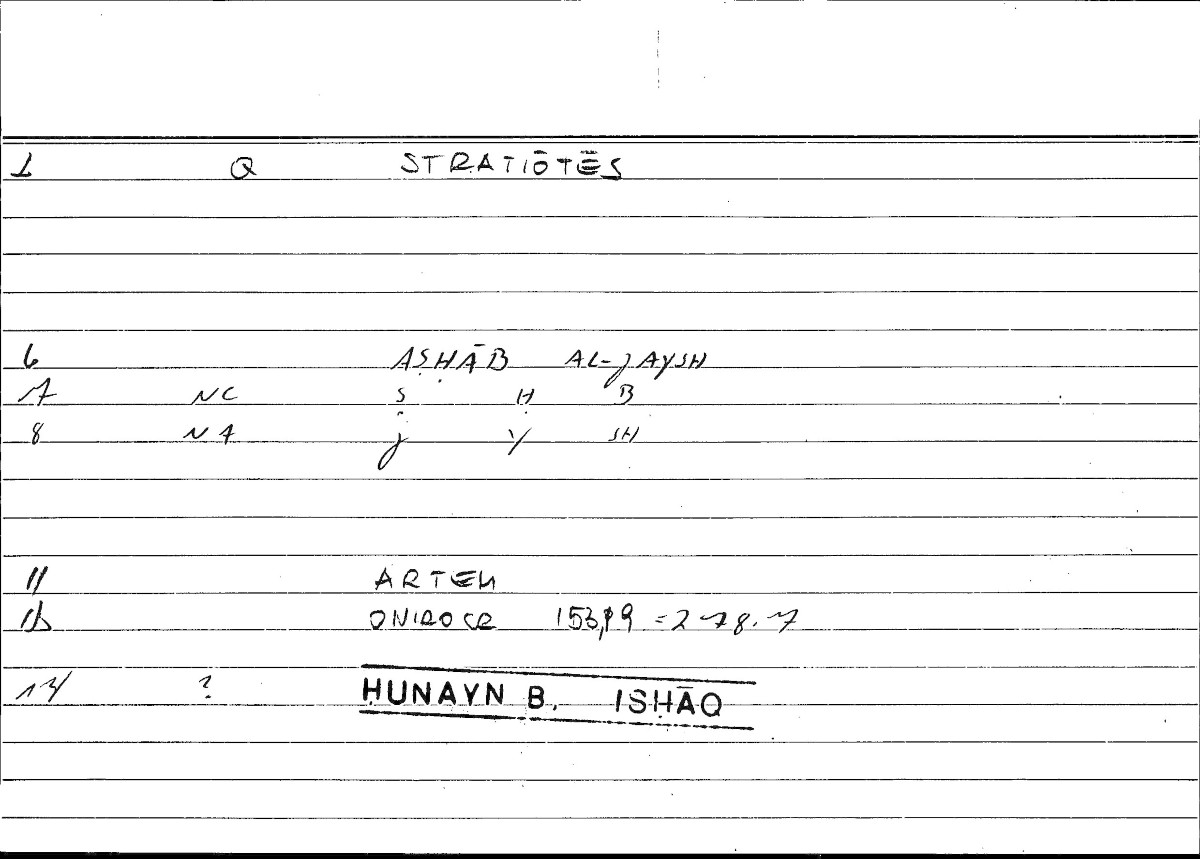 1 Q STRATIŌTĒS
6 AṢḤĀB AL-JAYSH
7 NC Ṣ Ḥ B
8 NA J Y SH
11 ARTEM
12 ONIROCR 153,19 = 278.7
13/ ? ḤUNAYN B. ISḤĀQ